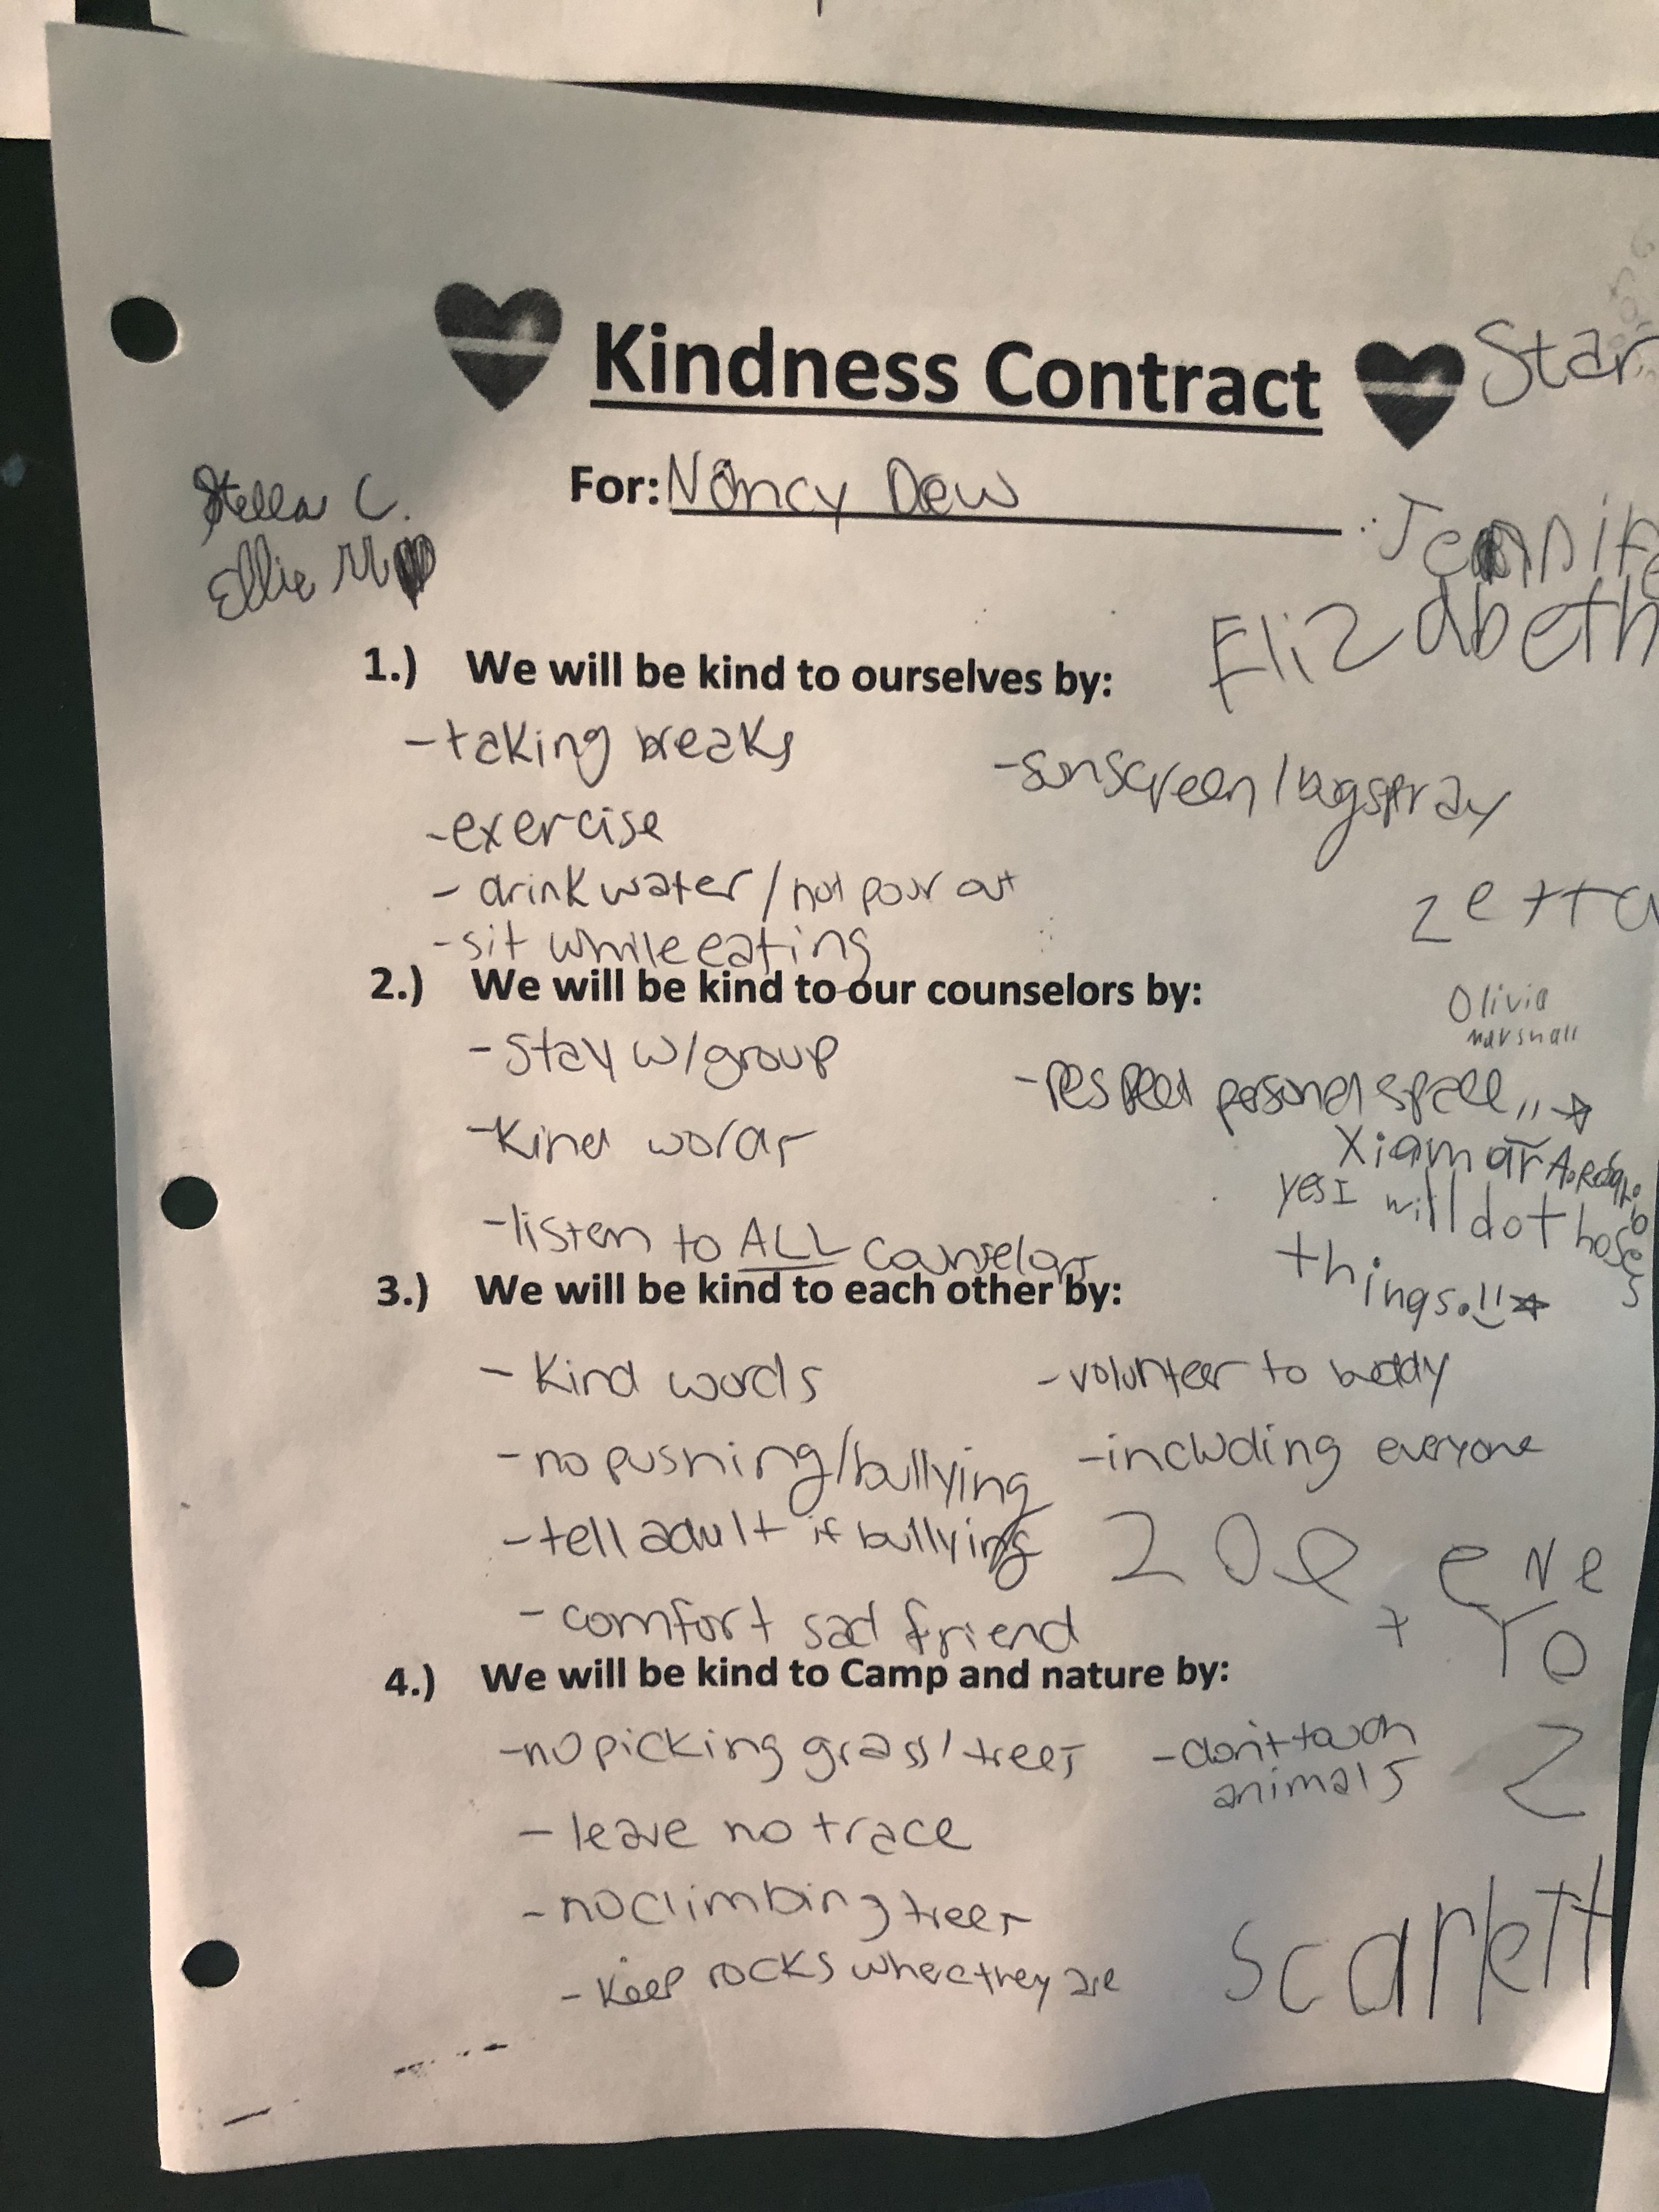 Kindness Contract
Star
For: Nancy Dew
Stella C.
Ellie M
Jennife
Elizabeth
1.) We will be kind to ourselves by:
-taking breaks
-sunscreen/bugspray
-exercise
- drink water/not pour out
Zetta
-sit while eating
2.) We will be kind to our counselors by:
Olivia
Marshall
-stay w/group
-respect personal space
-kind words
Xiamar A.
yes I will do those
things.!!
-listen to ALL counselors
3.) We will be kind to each other by:
- kind words
-volunteer to buddy
-no pushing/bullying
-including everyone
-tell adult if bullying
Zoe
eve
- comfort sad friend
+ YO
4.) We will be kind to Camp and nature by:
-no picking grass/trees
-don't touch
animals
Z
- leave no trace
-no climbing trees
Scarlett
- keep rocks where they are